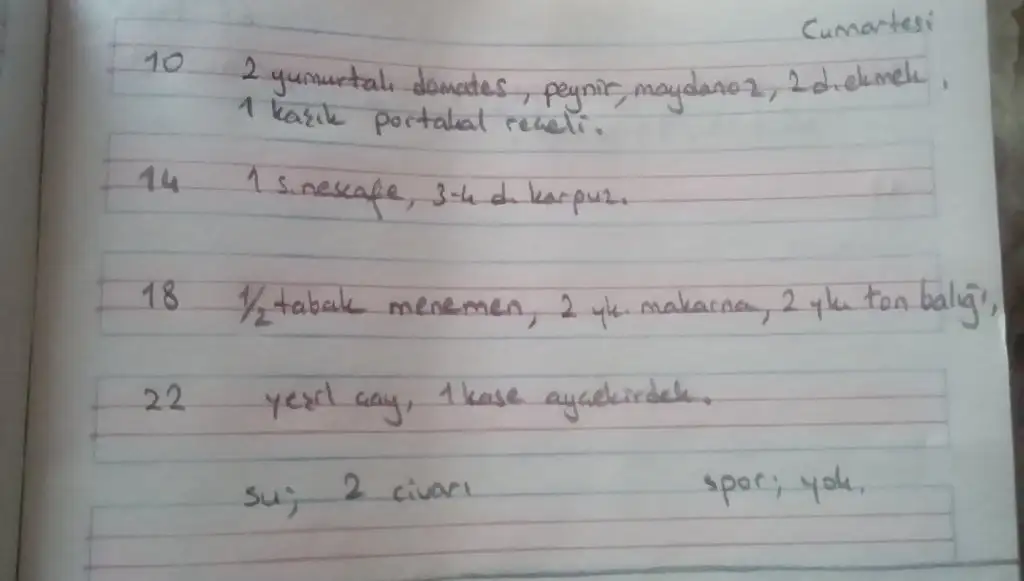 Cumartesi
10 2 yumurtalı domates, peynir, maydanoz, 2 d. ekmek,
1 kaşık portakal reçeli.
14 1 s. nescafe, 3-4 d. karpuz.
18 1/2 tabak menemen, 2 yk. makarna, 2 yk ton balığı,
22 yeşil çay, 1 kase ayçekirdek.
su; 2 civarı spor; yok.